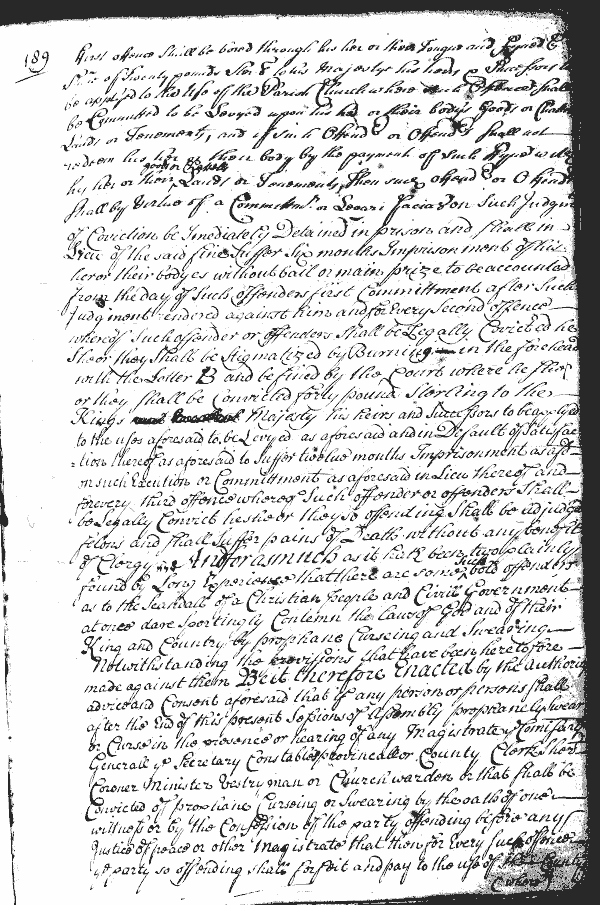 189
first offence Shall be bored through his her or their Tongue and fyned
of Twenty pounds Ster to his Majestye his heirs & Successors to
be applyed to the use of the Parish Church where Such Offence Shall
be Committed to be Levyed upon his her or their bodys Goods or Chattels
Lands or Tenements, and if Such Offender or Offenders Shall not
redeem his her or their body by the payment of Such fyne
his, her or their Goods or Chattels Lands or Tenements, Then such Offender or Offenders
Shall by Virtue of a Committmt or Levari Facias on Such Judgmt
of Conviction be Imediately Detained in prison and Shall in
Lieu of the said fine Suffer Six months Imprisonment of his
her or their bodyes without bail or main prize to be accounted
from the day of Such offenders first Committment after Such
Judgment rendered against him and for Every Second offence
whereof Such offender or offenders Shall be Legally Covicted he
She or they Shall be Stigmatized by Burning in the forehead
with the Letter B and be fined by the Court where he She
or they Shall be Convicted forty pounds Sterling to the
Kings Majesty his heirs and Successors to be applyed
to the uses aforesaid to be Levyed as aforesaid and in Default of Satisfac
tion thereof as aforesaid to Suffer twelve months Imprisonment as afsd
on such Execution or Committment as aforesaid in Lieu thereof and
for every third offence whereof Such offender or offenders Shall
be Legally Convict he she or they so offending Shall be adjudged
felons and Shall Suffer pains of Death without any benefitt
of Clergy And forasmuch as it hath been two plainly
found by Long Experience that there are some Such bold offenders
as to the Scandall of a Christian People and Civil Government
at once dare Sportingly Contemn the laws of God and of their
King and Country by prophane Curseing and Swearing
Notwithstanding the provissions that have been heretofore
made against them Be it therefore Enacted by the authority
advice and Consent aforesaid that if any person or persons Shall
after the End of this present Sessions of Assembly prophanely Swear
or Curse in the presence or hearing of any Magistrate ye Comissary
Generall ye Secretary Constable provinceall or County Clerk Sherr
Coroner Minister Vestryman or Church warden or that shall be
Convicted of prophane Curseing or Swearing by the oath of one
witness or by the Confession of the party offending before any
Justice of peace or other Magistrate that then for Every Such offence
ye party so offending Shall forfeit and pay to the use of